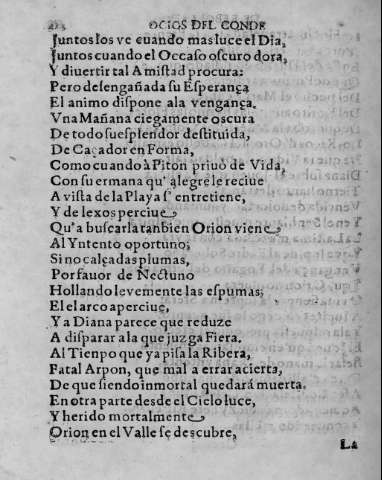 OCIOS DEL CONDE
Juntos los ve cuando mas luce el Dia,
Juntos cuando el Occaso oscuro dora,
Y diuertir tal Amistad procura:
Pero desengañada su Esperança
El animo dispone ala vengança.
Vna Mañana ciegamente oscura
De todo suesplendor destituida,
De Caçador en Forma,
Como cuando à Piton priuò de Vida,
Con su ermana qu' alegre le reciue
A vista de la Playa s' entretiene,
Y de lexos perciue
Qu'a buscarla tanbien Orion viene
Al Yntento oportuno;
Si no calçadas plumas,
Por fauor de Nectuno
Hollando levemente las espumas;
El el arco aperciue,
Y a Diana parece que reduze
A disparar a la que juzga Fiera.
Al Tienpo que ya pisa la Ribera,
Fatal Arpon, que mal a errar acierta,
De que siendo inmortal quedará muerta.
En otra parte desde el Cielo luce,
Y herido mortalmente
Orion en el Valle se descubre,
La